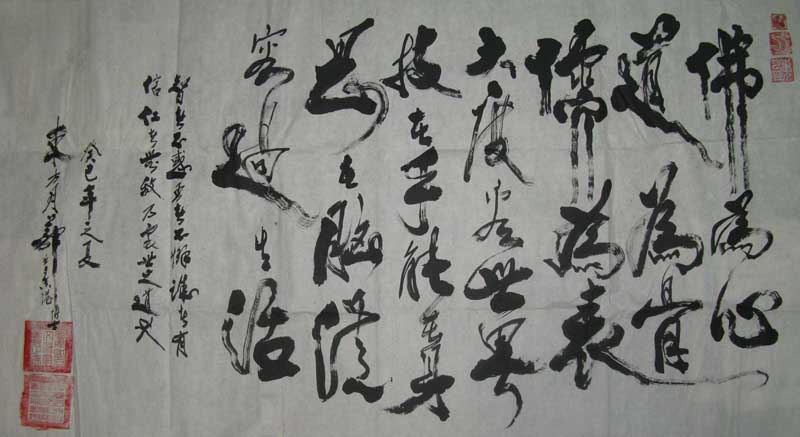 佛為心
道為骨
儒為表
大度看世界
技在手能在身
思在腦從
容過生活
智者不惑勇者不懼誠者有
信仁者無敵乃處世之道
癸巳年之夏
東方月